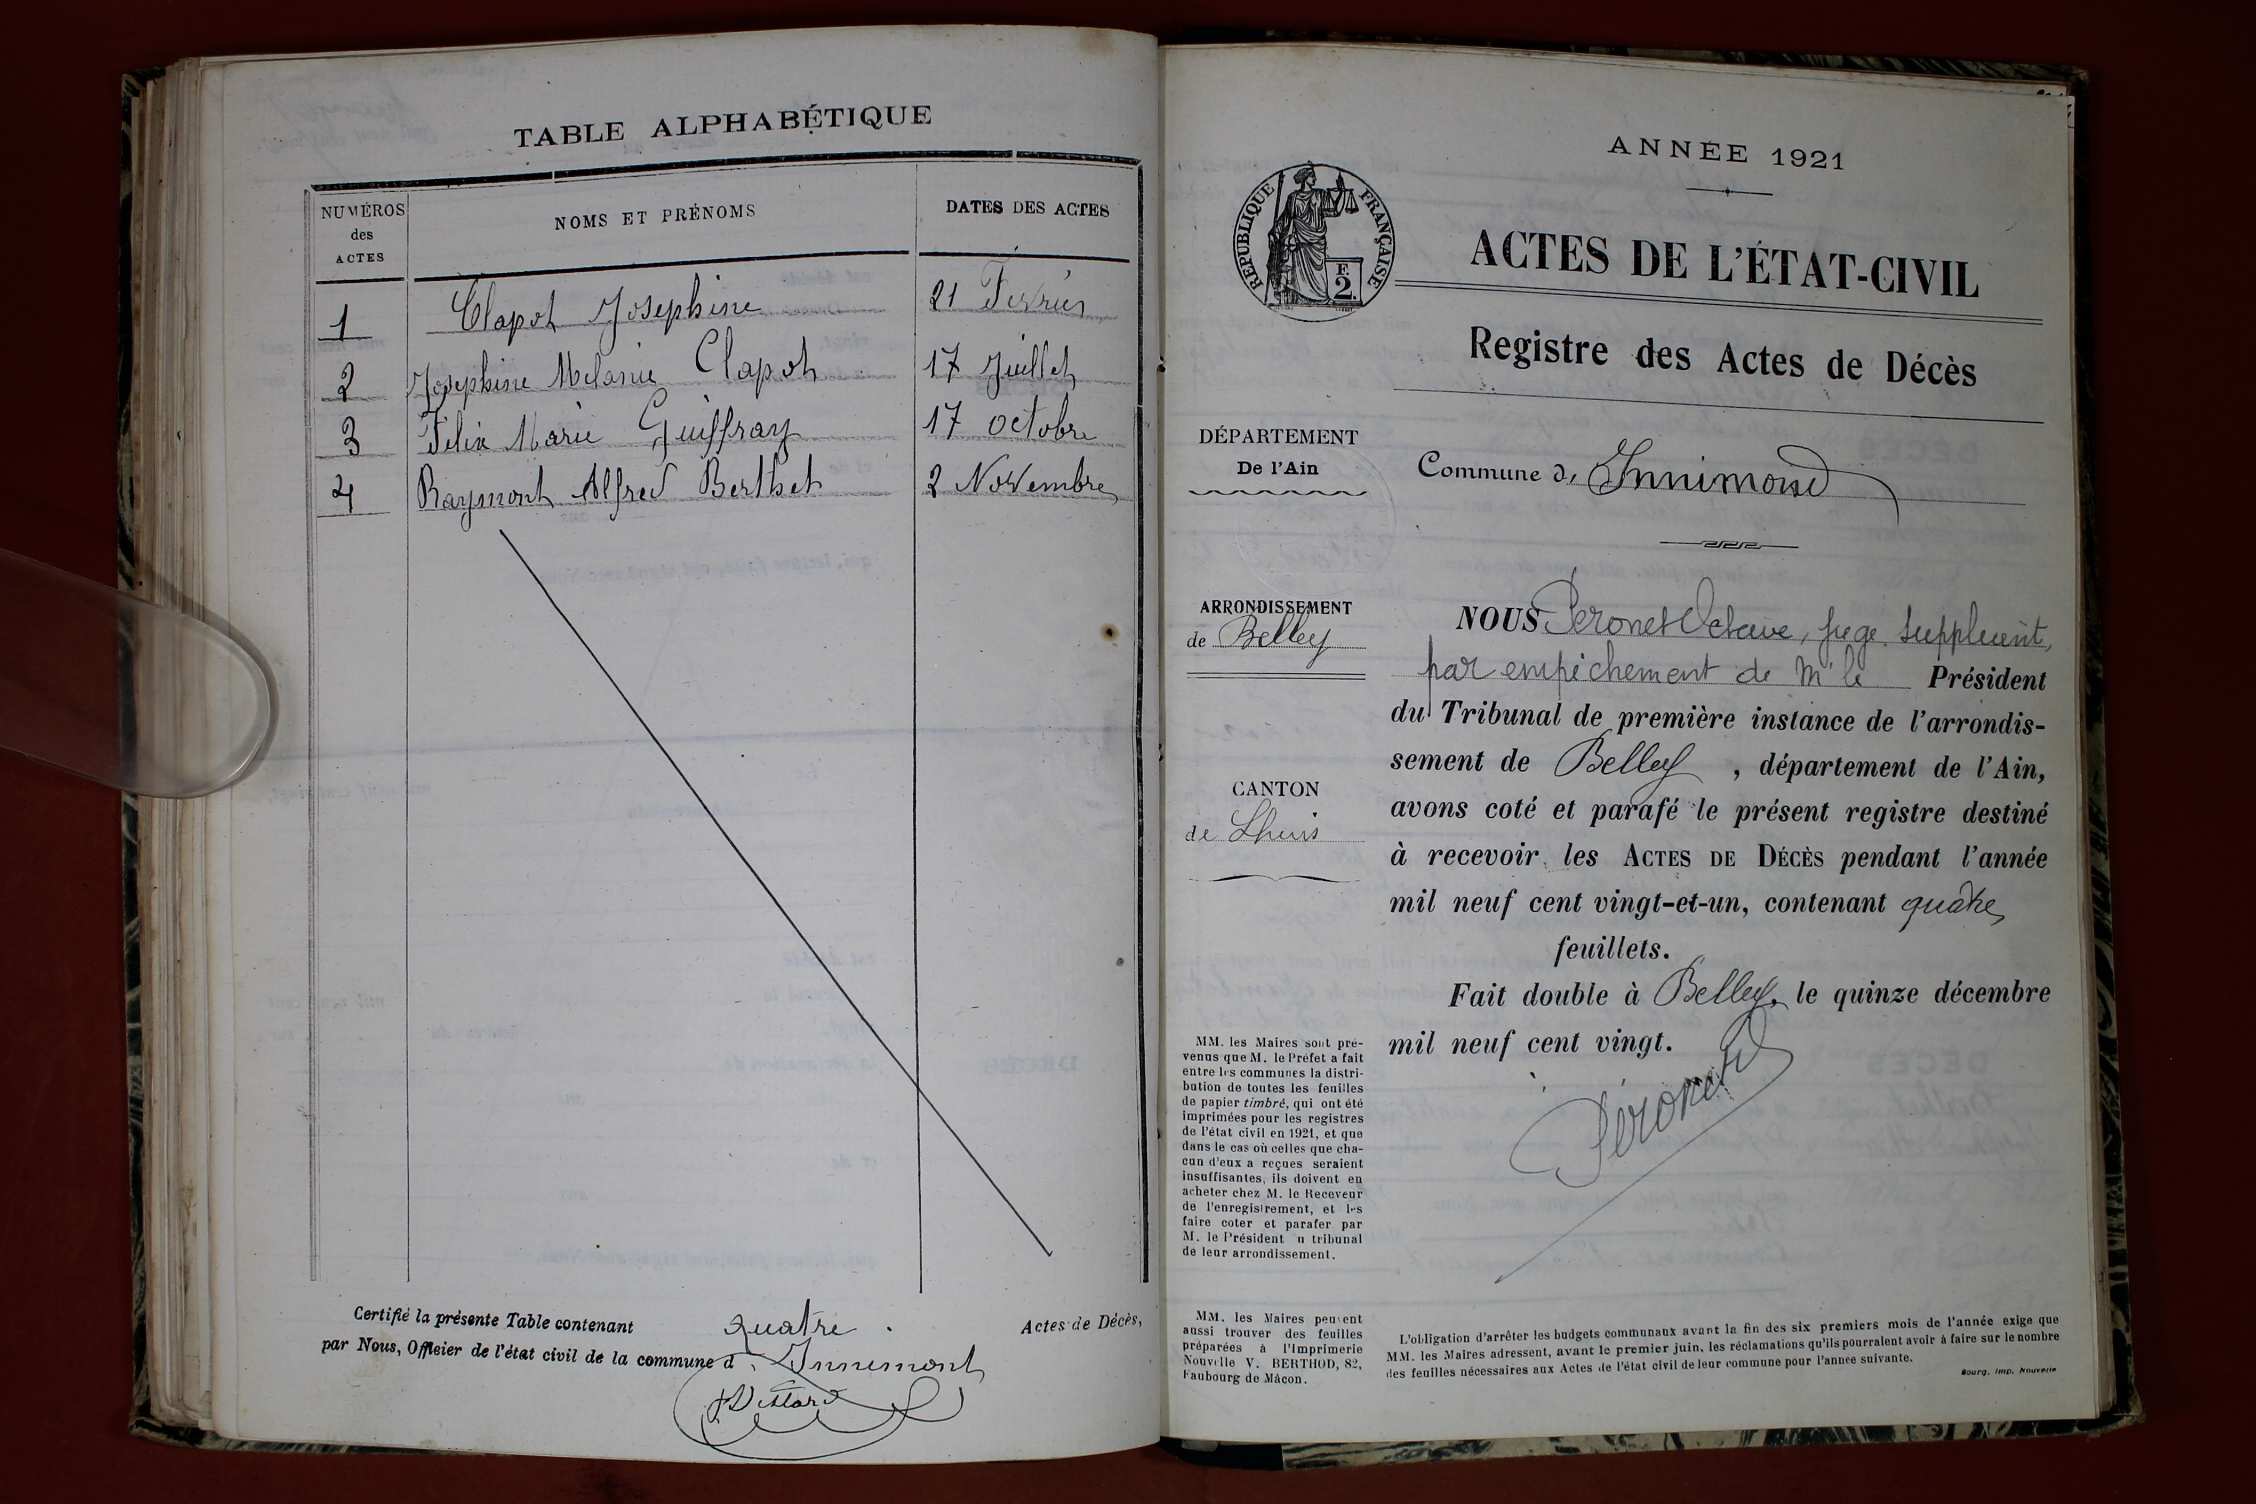 TABLE ALPHABÉTIQUE
NUMÉROS des ACTES
NOMS ET PRÉNOMS
DATES DES ACTES
1 Clapot Josephine 21 Fevrier
2 Josephine Melanie Clapot 17 Juillet
3 Felix Marie Guiffray 17 octobre
4 Raymont Alfred Berthet 2 Novembre
Certifié la présente Table contenant quatre Actes de Décès,
par Nous, Officier de l'état civil de la commune d'Innimont
ANNÉE 1921
RÉPUBLIQUE FRANÇAISE
F.
2.
ACTES DE L'ÉTAT-CIVIL
Registre des Actes de Décès
DÉPARTEMENT
De l'Ain
Commune d'Innimond
ARRONDISSEMENT
de Belley
CANTON
de Lhuis
MM. les Maires sont pré-
venus que M. le Préfet a fait
entre les communes la distri-
bution de toutes les feuilles
de papier timbré, qui ont été
imprimées pour les registres
de l'état civil en 1921, et que
dans le cas où celles que cha-
cun d'eux a reçues seraient
insuffisantes, ils doivent en
acheter chez M. le Receveur
de l'enregistrement, et les
faire coter et parafer par
M. le Président u tribunal
de leur arrondissement.
MM. les Maires peuvent
aussi trouver des feuilles
préparées à l'Imprimerie
Nouvelle V. BERTHOD, 82,
Faubourg de Mâcon.
NOUS Peronet Octave, juge suppleant,
par empêchement de Mr le Président
du Tribunal de première instance de l'arrondis-
sement de Belley, département de l'Ain,
avons coté et parafé le présent registre destiné
à recevoir les ACTES DE DÉCÈS pendant l'année
mil neuf cent vingt-et-un, contenant quatre
feuillets.
Fait double à Belley, le quinze décembre
mil neuf cent vingt.
Péronet
L'obligation d'arrêter les budgets communaux avant la fin des six premiers mois de l'année exige que
MM. les Maires adressent, avant le premier juin, les réclamations qu'ils pourraient avoir à faire sur le nombre
des feuilles nécessaires aux Actes de l'état civil de leur commune pour l'année suivante.
Bourg, Imp. Nouvelle